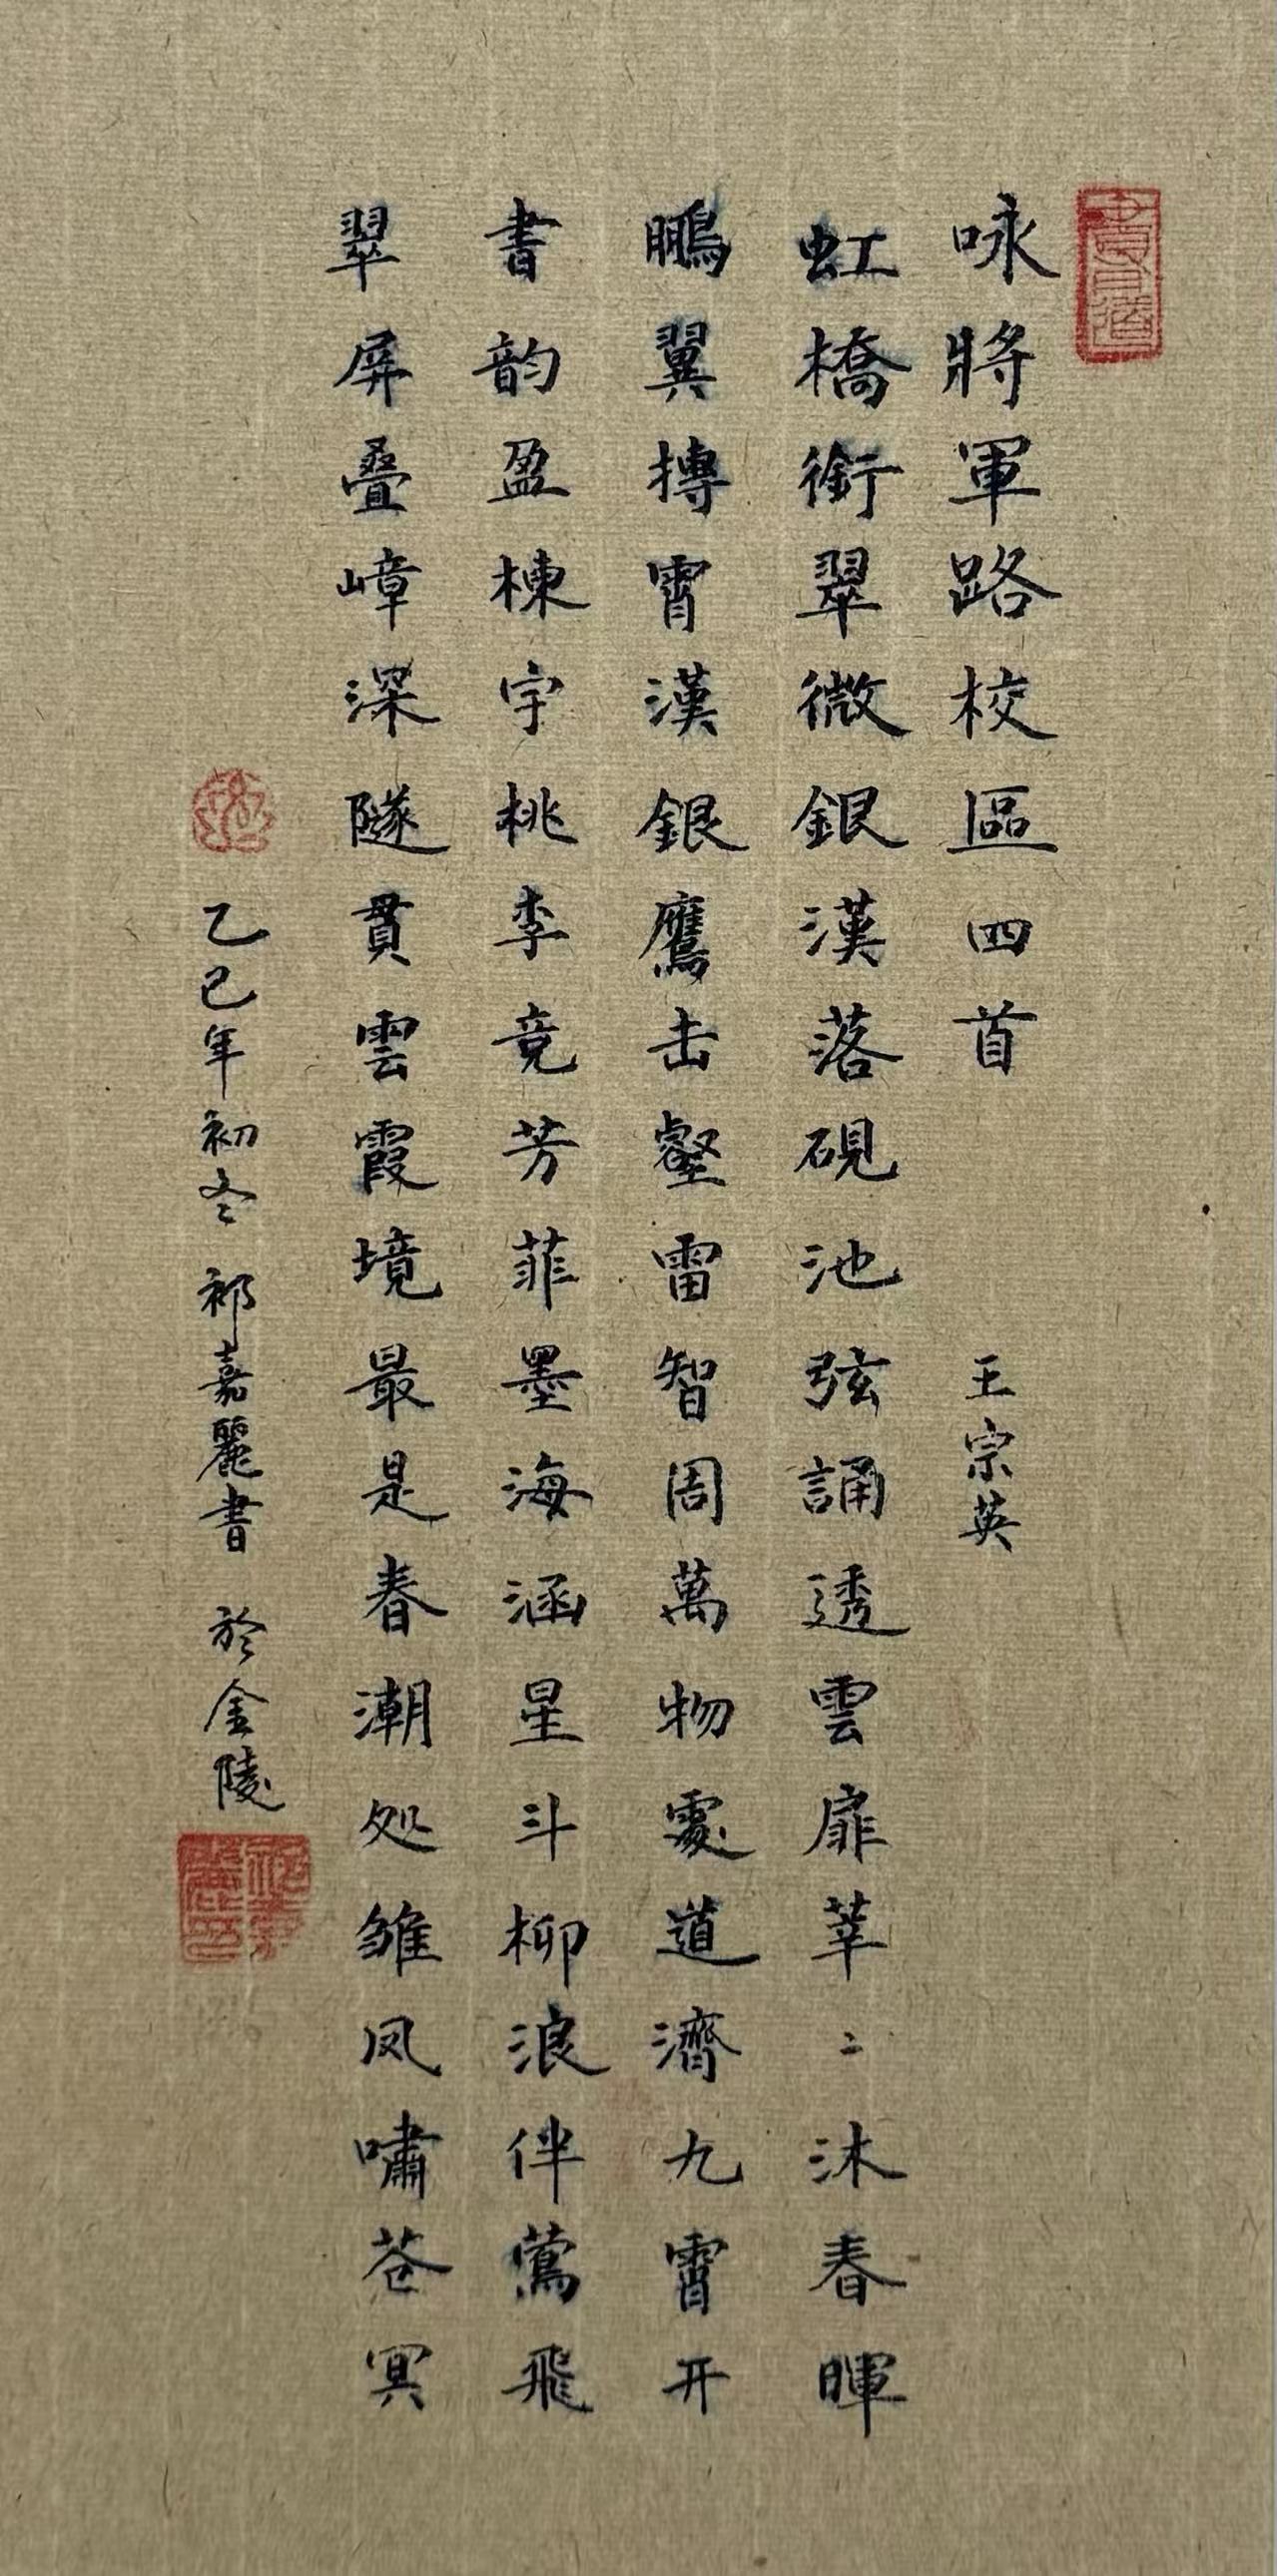 咏將軍路校區四首 王宗英
虹橋銜翠微銀漢落硯池弦誦透雲扉莘〻沐春暉
鵬翼摶霄漢銀鷹击壑雷智周萬物處道濟九霄开
書韵盈棟宇桃李竞芳菲墨海涵星斗柳浪伴鶯飛
翠屏叠嶂深隧貫雲霞境最是春潮处雏凤嘯苍冥
乙巳年初冬 祁嘉麗書 於金陵